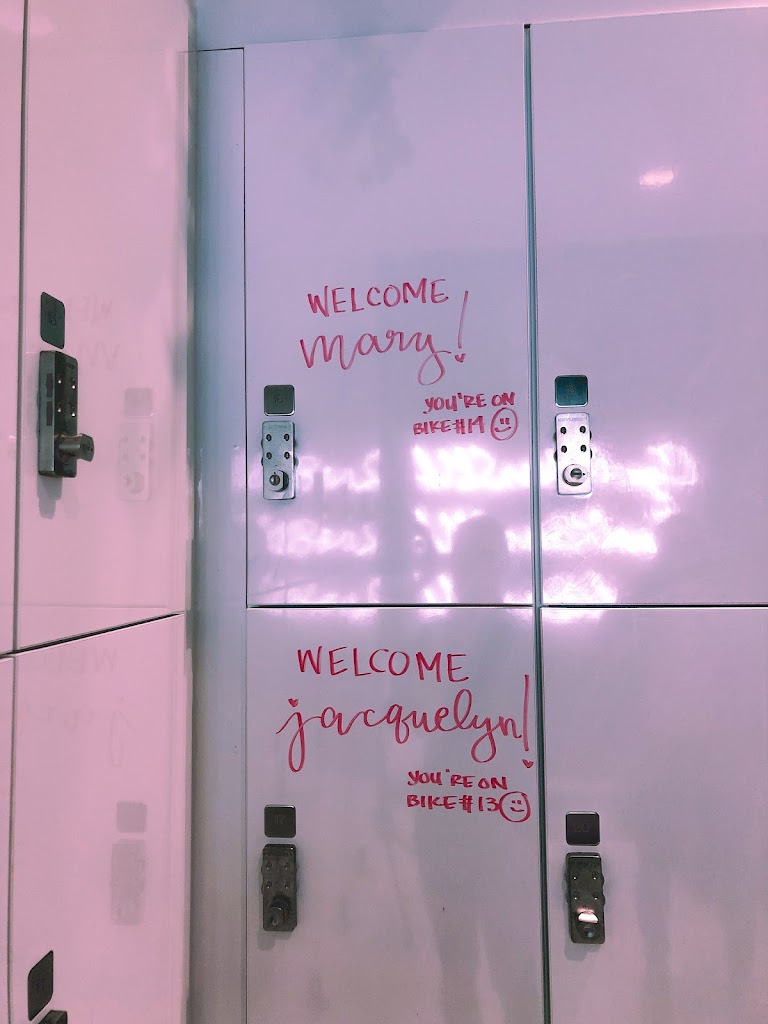 WELCOME
mary!
YOU'RE ON
BIKE#14
WELCOME
jacquelyn!
YOU'RE ON
BIKE#13